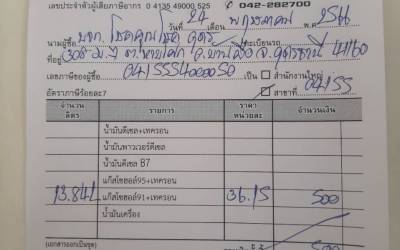 เลขประจำตัวผู้เสียภาษีอากร 0 4135 49000 525 042-282700
วันที่ 24 เดือน พฤษภาคม พ.ศ. 2566
นามผู้ซื้อ บจก. โชคคูณโชค อุดร ทะเบียนรถ
ที่อยู่ 308 ม.9 ต.หายโศก อ.บ้านผือ จ.อุดรธานี 41160
เลขภาษีของผู้ซื้อ 0415554000050 เป็น สำนักงานใหญ่
อัตราภาษีร้อยละ7 สาขาที่ 04155
จำนวน ลิตร รายการ ราคา หน่วยละ จำนวนเงิน
น้ำมันดีเซล+เทครอน
น้ำมันพาวเวอร์ดีเซล
น้ำมันดีเซล B7
แก๊สโซฮอล์95+เทครอน
13.841 แก๊สโซฮอล์91+เทครอน 36.15 500
น้ำมันเครื่อง
(เอกสารออกเป็นชุด) 500